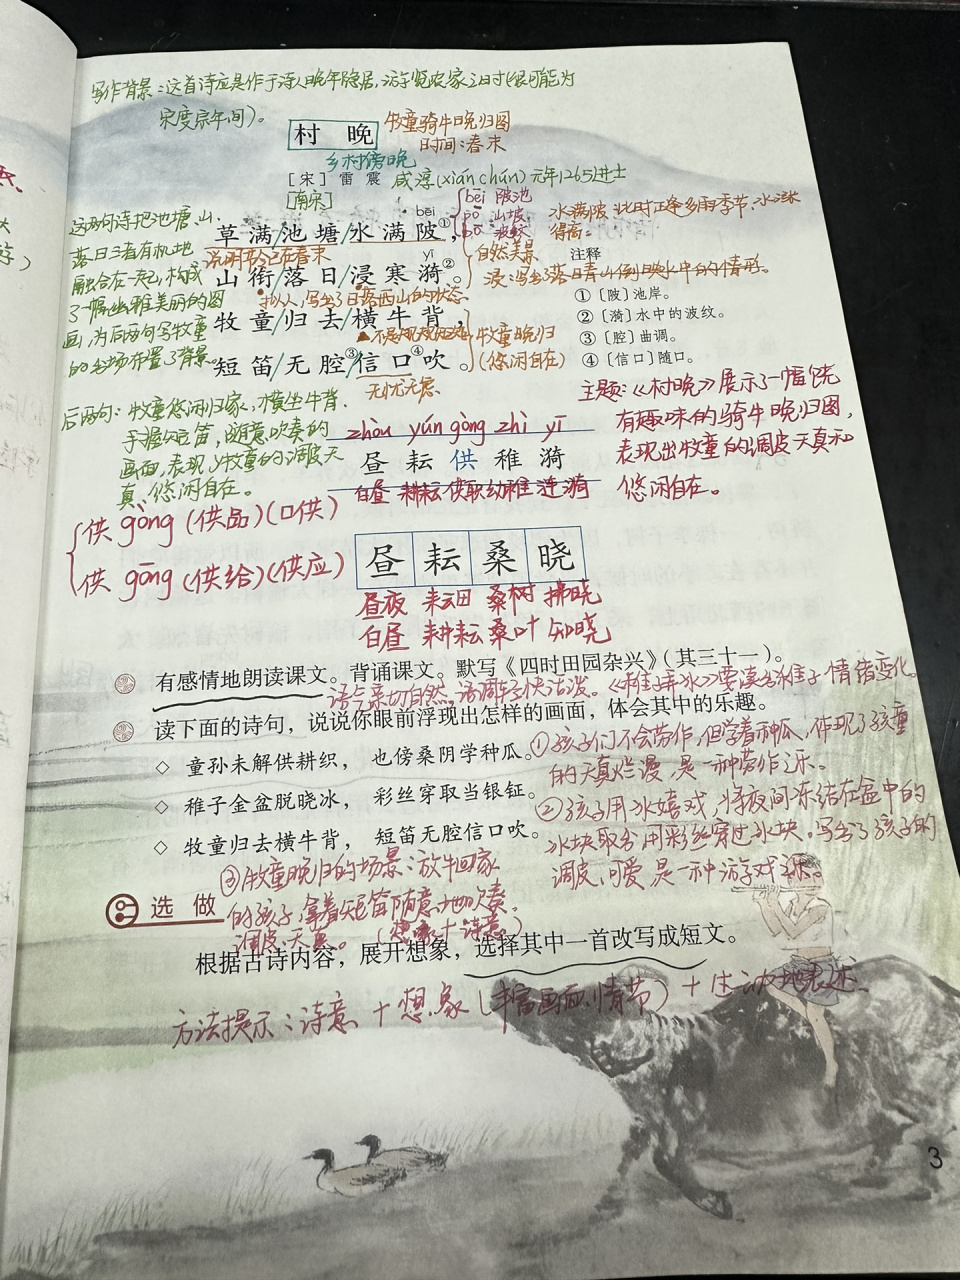 写作背景:这首诗应是作于诗人晚年隐居,游览农家之时(很可能为
宋度宗年间)。
村 晚
牧童骑牛晚归图
时间:春末
乡村傍晚
[宋] 雷 震
咸淳(xián chún)元年1265进士
[南宋]
bēi 陂池
山坡
bēi
草满/池塘/水满陂①,
水满陂:此时正逢多雨季节,水涨
得高。
说明节令已在春末
自然美景
注释
yī
山衔/落日/浸寒漪②。
浸:写出了落日青山倒映水中的情形。
拟人,写出了日落西山的状态
①〔陂〕池岸。
②〔漪〕水中的波纹。
③〔腔〕曲调。
④〔信口〕随口。
牧童/归去/横牛背,
不是规规矩矩地
牧童晚归
(悠闲自在)
短笛/无腔③/信口④吹。
无忧无虑
这两句诗把池塘、山、
落日三者有机地
融合在一起,构成
了一幅幽雅美丽的图
画,为后两句写牧童
的出场布置了背景。
后两句:牧童悠闲归家,横坐牛背,
手握短笛,随意吹奏的
画面,表现了牧童的调皮天
真、悠闲自在。
主题:《村晚》展示了一幅饶
有趣味的骑牛晚归图,
表现出牧童的调皮天真和
悠闲自在。
zhòu yún gòng zhì yī
昼 耘 供 稚 漪
白昼 耕耘 供职 幼稚 涟漪
供 gòng (供品)(口供)
供 gōng (供给)(供应)
昼 耘 桑 晓
昼夜 耘田 桑树 拂晓
白昼 耕耘 桑叶 知晓
有感情地朗读课文。背诵课文。默写《四时田园杂兴》(其三十一)。
语气亲切自然,语调轻快活泼。《稚子弄冰》要读出稚子情绪变化。
读下面的诗句,说说你眼前浮现出怎样的画面,体会其中的乐趣。
◇ 童孙未解供耕织, 也傍桑阴学种瓜。
①孩子们不会劳作,但学着种瓜,体现了孩童
的天真烂漫,是一种劳作之乐。
◇ 稚子金盆脱晓冰, 彩丝穿取当银钲。
②孩子用冰嬉戏,将夜间冻结在盆中的
冰块取出,用彩丝穿过冰块。写出了孩子的
调皮、可爱,是一种游戏之乐。
◇ 牧童归去横牛背, 短笛无腔信口吹。
③牧童晚归的场景:放牛回家
的孩子,拿着短笛随意地吹奏。
调皮、天真。(想象+诗意)
选 做
根据古诗内容,展开想象,选择其中一首改写成短文。
方法提示:诗意+想象(丰富画面、情节)+生动地表述
3